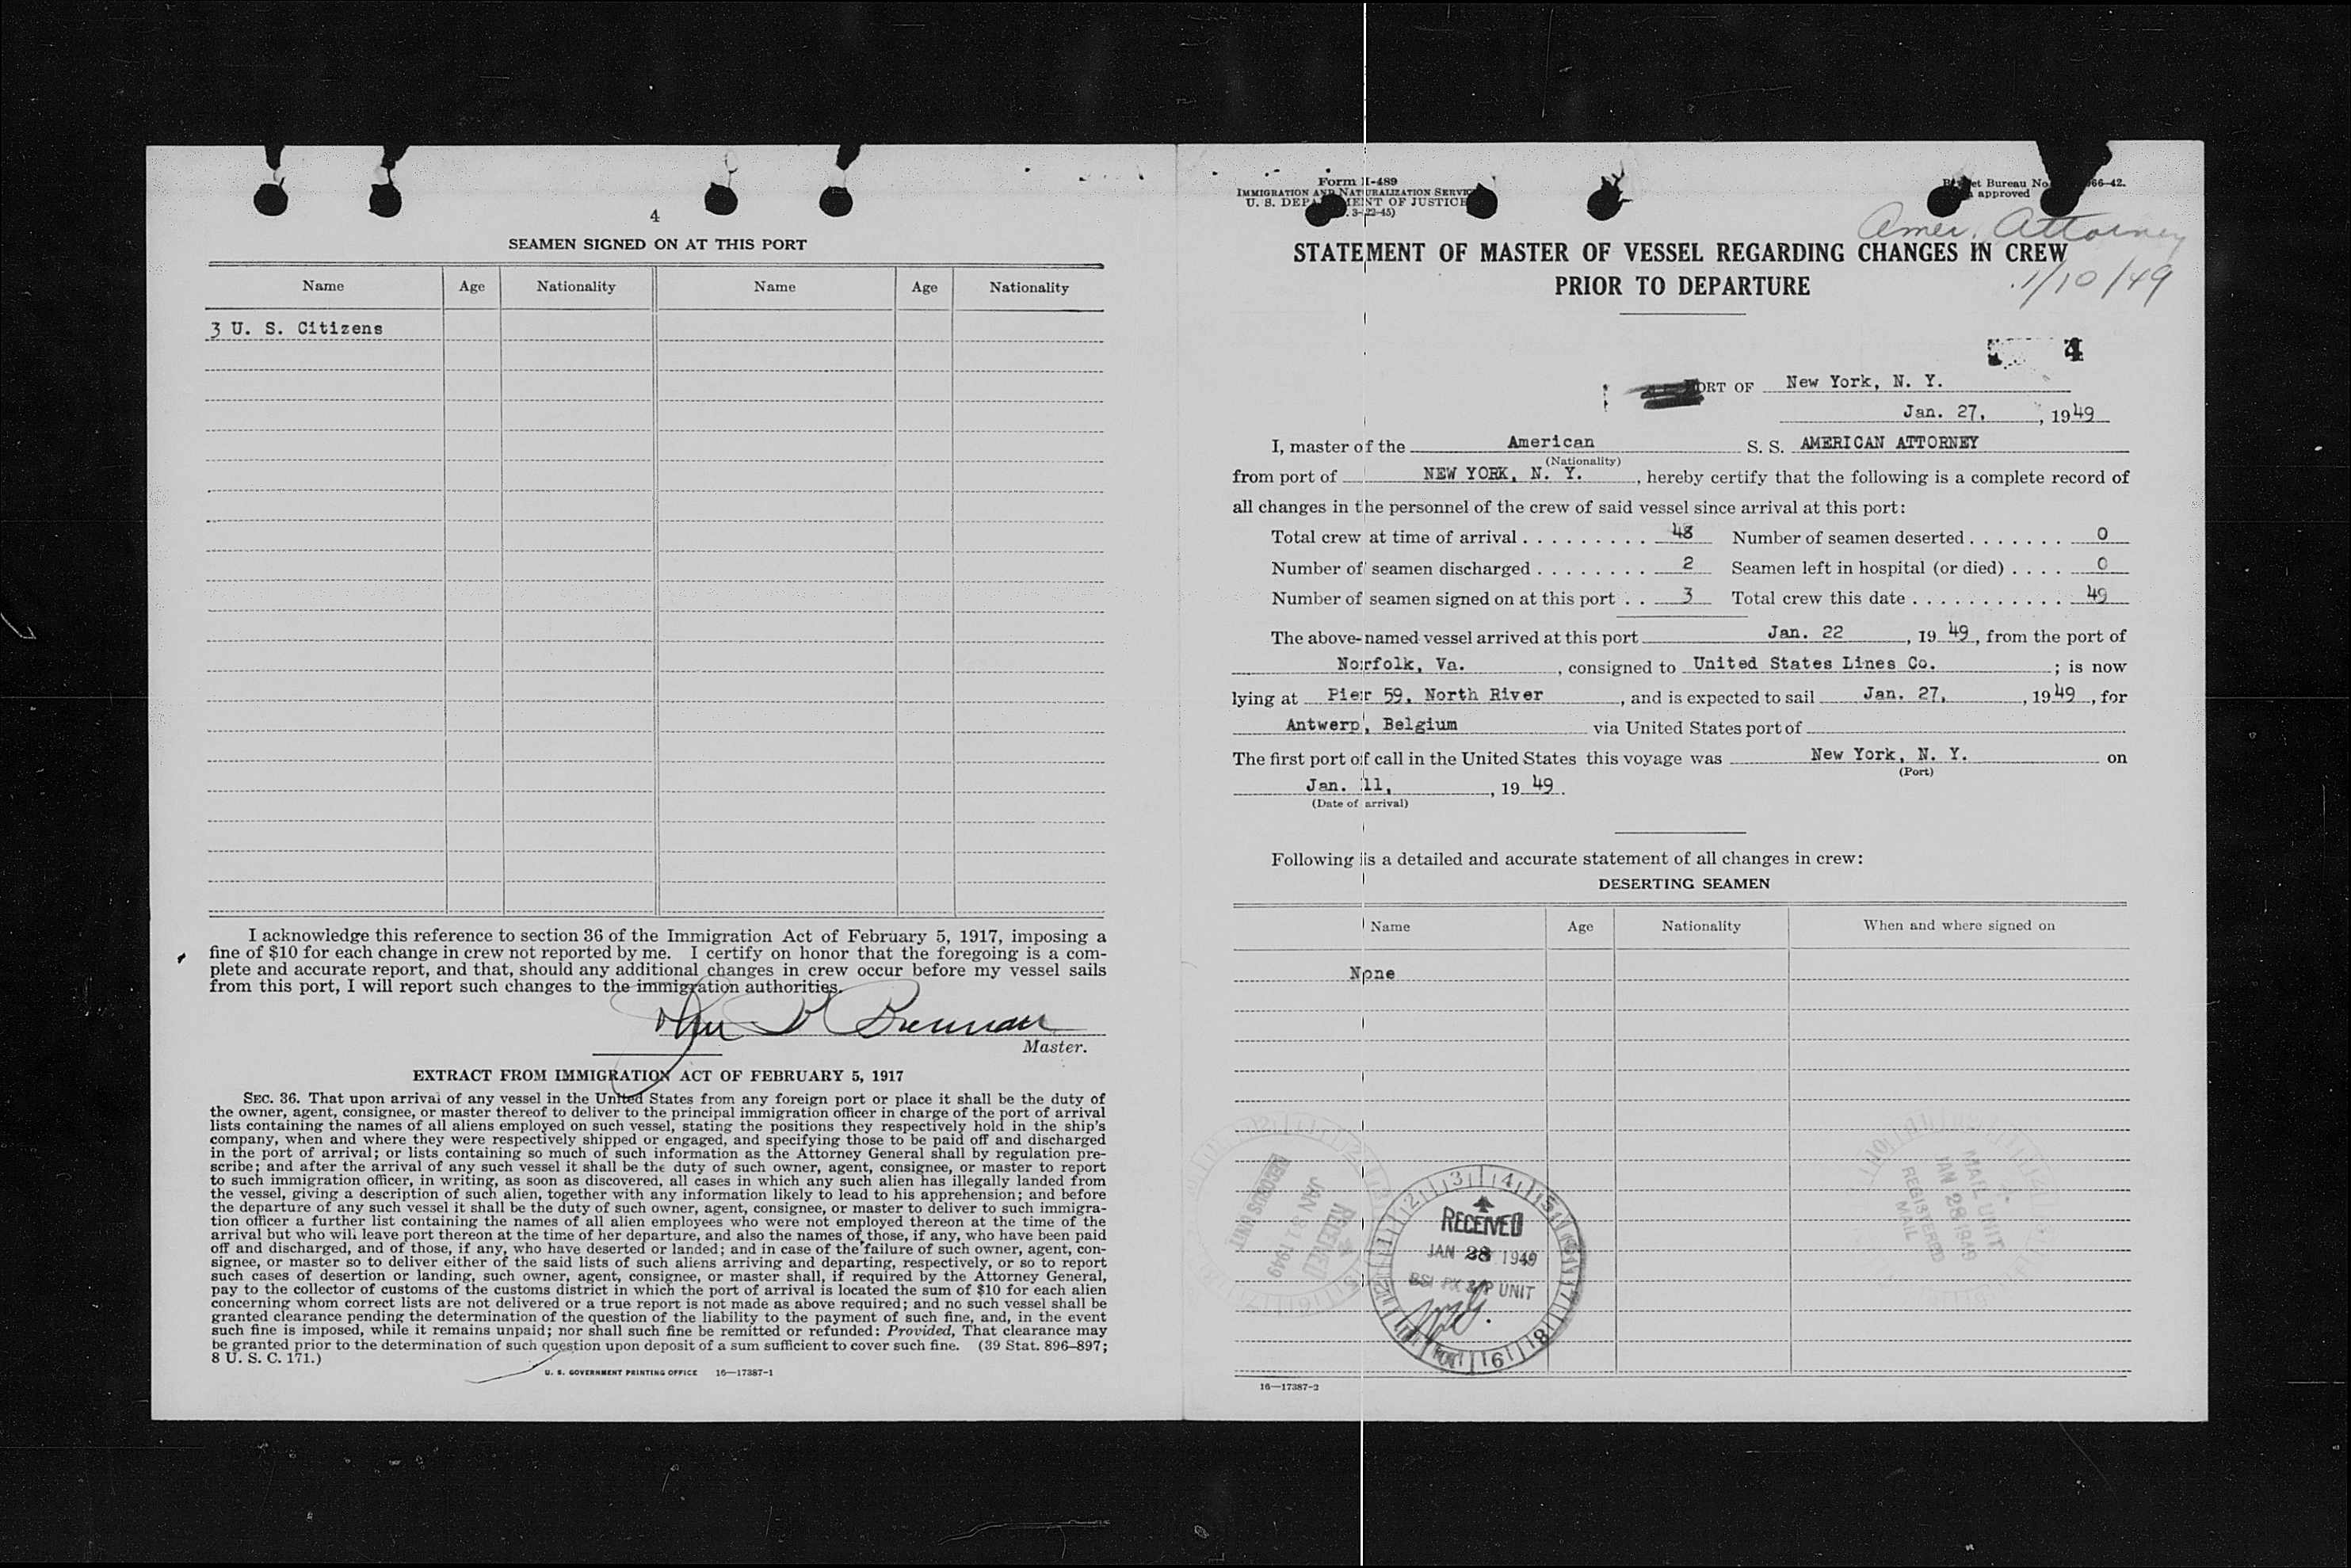 4
SEAMEN SIGNED ON AT THIS PORT
Name Age Nationality Name Age Nationality
3 U. S. Citizens
I acknowledge this reference to section 36 of the Immigration Act of February 5, 1917, imposing a
fine of $10 for each change in crew not reported by me. I certify on honor that the foregoing is a com-
plete and accurate report, and that, should any additional changes in crew occur before my vessel sails
from this port, I will report such changes to the immigration authorities.
Brennan
Master.
EXTRACT FROM IMMIGRATION ACT OF FEBRUARY 5, 1917
SEC. 36. That upon arrival of any vessel in the United States from any foreign port or place it shall be the duty of
the owner, agent, consignee, or master thereof to deliver to the principal immigration officer in charge of the port of arrival
lists containing the names of all aliens employed on such vessel, stating the positions they respectively hold in the ship's
company, when and where they were respectively shipped or engaged, and specifying those to be paid off and discharged
in the port of arrival; or lists containing so much of such information as the Attorney General shall by regulation pre-
scribe; and after the arrival of any such vessel it shall be the duty of such owner, agent, consignee, or master to report
to such immigration officer, in writing, as soon as discovered, all cases in which any such alien has illegally landed from
the vessel, giving a description of such alien, together with any information likely to lead to his apprehension; and before
the departure of any such vessel it shall be the duty of such owner, agent, consignee, or master to deliver to such immigra-
tion officer a further list containing the names of all alien employees who were not employed thereon at the time of the
arrival but who will leave port thereon at the time of her departure, and also the names of those, if any, who have been paid
off and discharged, and of those, if any, who have deserted or landed; and in case of the failure of such owner, agent, con-
signee, or master so to deliver either of the said lists of such aliens arriving and departing, respectively, or so to report
such cases of desertion or landing, such owner, agent, consignee, or master shall, if required by the Attorney General,
pay to the collector of customs of the customs district in which the port of arrival is located the sum of $10 for each alien
concerning whom correct lists are not delivered or a true report is not made as above required; and no such vessel shall be
granted clearance pending the determination of the question of the liability to the payment of such fine, and, in the event
such fine is imposed, while it remains unpaid; nor shall such fine be remitted or refunded: Provided, That clearance may
be granted prior to the determination of such question upon deposit of a sum sufficient to cover such fine. (39 Stat. 896–897;
8 U. S. C. 171.)
U. S. GOVERNMENT PRINTING OFFICE 16—17387-1
Form I-489
IMMIGRATION AND NATURALIZATION SERVICE
U. S. DEPARTMENT OF JUSTICE
3-22-45)
Budget Bureau No. 66-42.
approved
Amer. Attorney
STATEMENT OF MASTER OF VESSEL REGARDING CHANGES IN CREW
PRIOR TO DEPARTURE
1/10/49
4
PORT OF New York, N. Y.
Jan. 27, , 1949
I, master of the American S. S. AMERICAN ATTORNEY
(Nationality)
from port of NEW YORK, N. Y. , hereby certify that the following is a complete record of
all changes in the personnel of the crew of said vessel since arrival at this port:
Total crew at time of arrival . . . . . . . . . 48 Number of seamen deserted . . . . . . . 0
Number of seamen discharged . . . . . . . . 2 Seamen left in hospital (or died) . . . . 0
Number of seamen signed on at this port . . 3 Total crew this date . . . . . . . . . . . 49
The above-named vessel arrived at this port Jan. 22 , 19 49, from the port of
Norfolk, Va. , consigned to United States Lines Co. ; is now
lying at Pier 59, North River , and is expected to sail Jan. 27, , 1949, for
Antwerp, Belgium via United States port of
The first port of call in the United States this voyage was New York, N. Y. on
(Port)
Jan. 11, , 19 49.
(Date of arrival)
Following is a detailed and accurate statement of all changes in crew:
DESERTING SEAMEN
Name Age Nationality When and where signed on
None
RECORDS UNIT
JAN 31 1949
RECEIVED
RECEIVED
JAN 28 1949
UNIT
MAIL UNIT
JAN 28 1949
REGISTERED
MAIL
16—17387-2